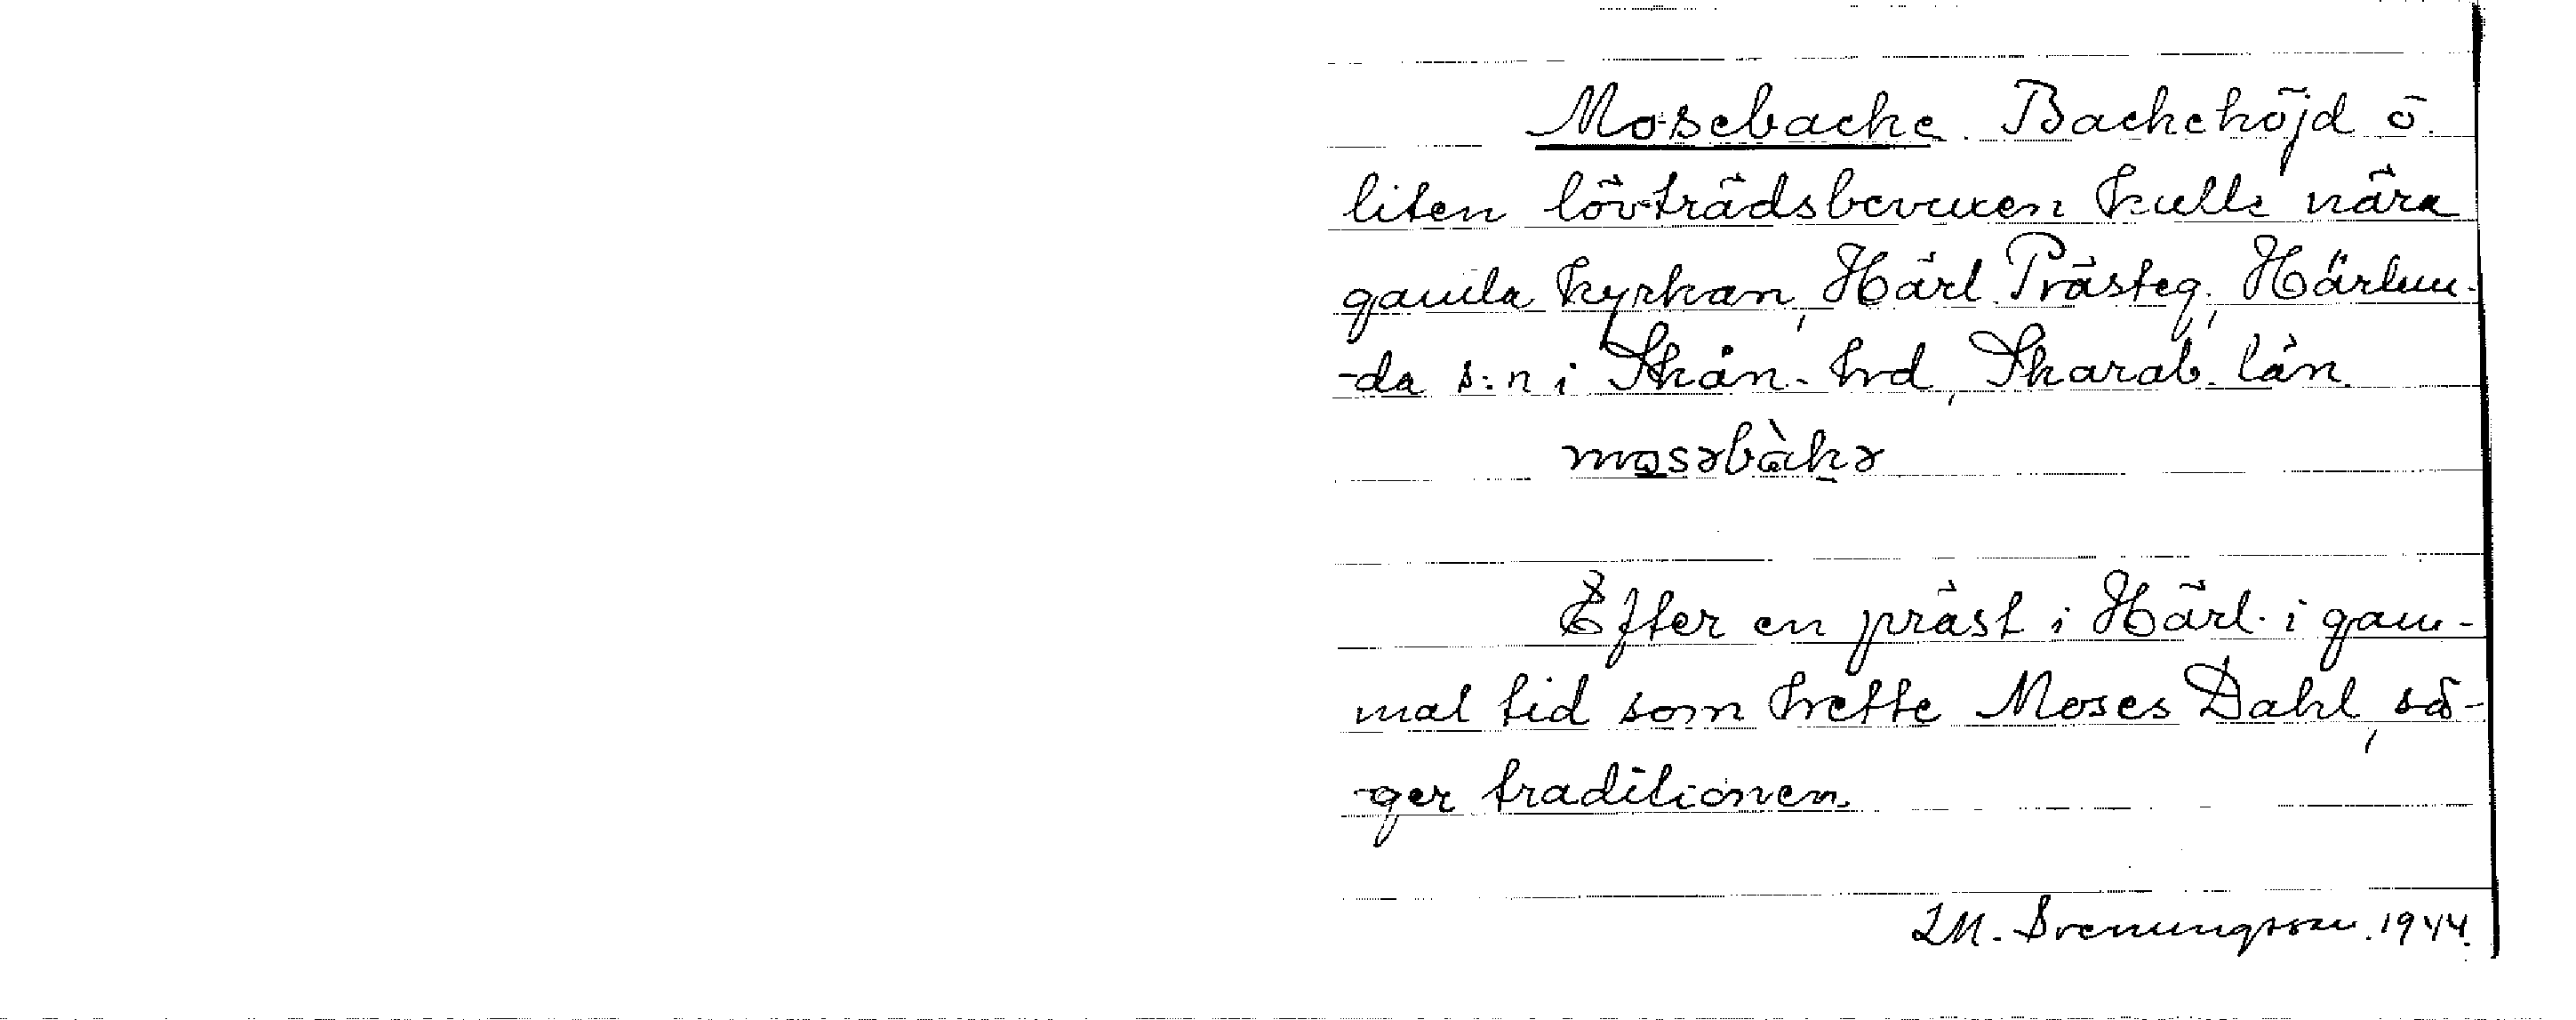 Mosebacke. Backehöjd o.
liten lövträdsbevuxen kulle nära
gamla kyrkan, Härl. Prästeg., Härlun-
-da s:n i Skån. hrd, Skarab. län.
mosəbàkə
Efter en präst i Härl. i gam-
mal tid som hette Moses Dahl, sä-
-ger traditionen.
LM. Svenungsson. 1944.